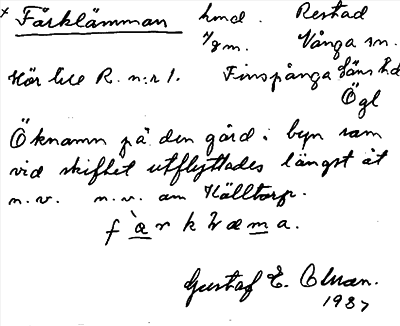 x Fårklämman hmd. Restad
1/8 m. Vånga sn.
Hör till R. n:r 1. Finspånga läns hd
Ögl
Öknamn på den gård i byn som
vid skiftet utflyttades längst åt
n.v. n.v. om Källtorp.
Gustaf E.
1937